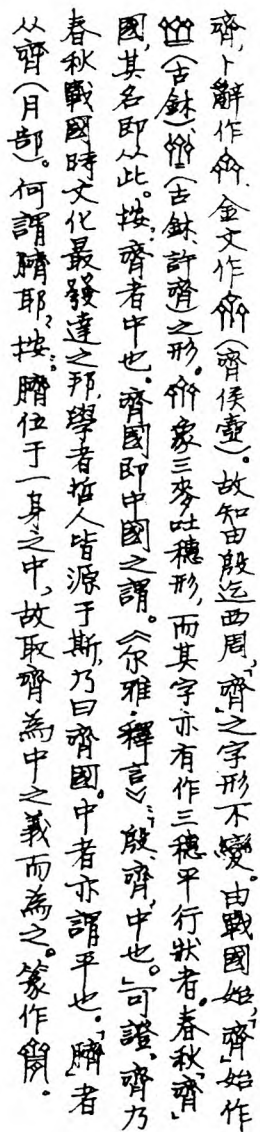 齊,卜辭作,金文作(齊侯壺)。故知由殷迄西周,「齊」之字形不變。由戰國始,「齊」始作
(古鉨)(古鉨、許齊)之形。象三麥吐穗形,而其字亦有作三穗平行狀者。春秋「齊」
國,其名即从此。按:齊者中也。齊國即中國之謂。《尔雅·釋言》:「殷、齊,中也。」可證。齊乃
春秋戰國時文化最發達之邦,學者哲人皆源于斯,乃曰齊國。中者亦謂平也。「臍」者
从齊(月部)。何謂臍耶?按:臍位于一身之中,故取齊為中之義而為之。篆作。